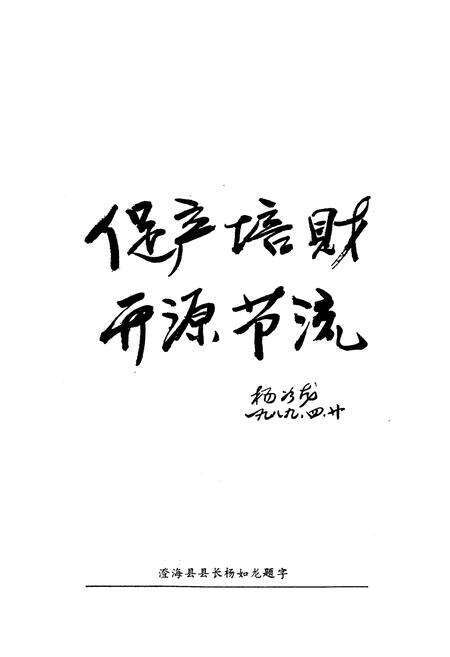 促产培財
开源节流
杨如龙
一九八九.四.廿
澄海县县长杨如龙题字